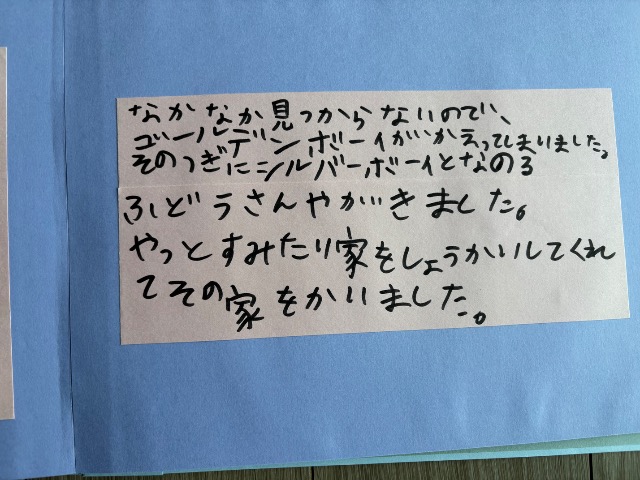 なかなか見つからないので、
ゴールデンボーイがかえってしまいました。
そのつぎにシルバーボーイとなのる
ふどうさんやがきました。
やっとすみたい家をしょうかいしてくれ
てその家をかいました。